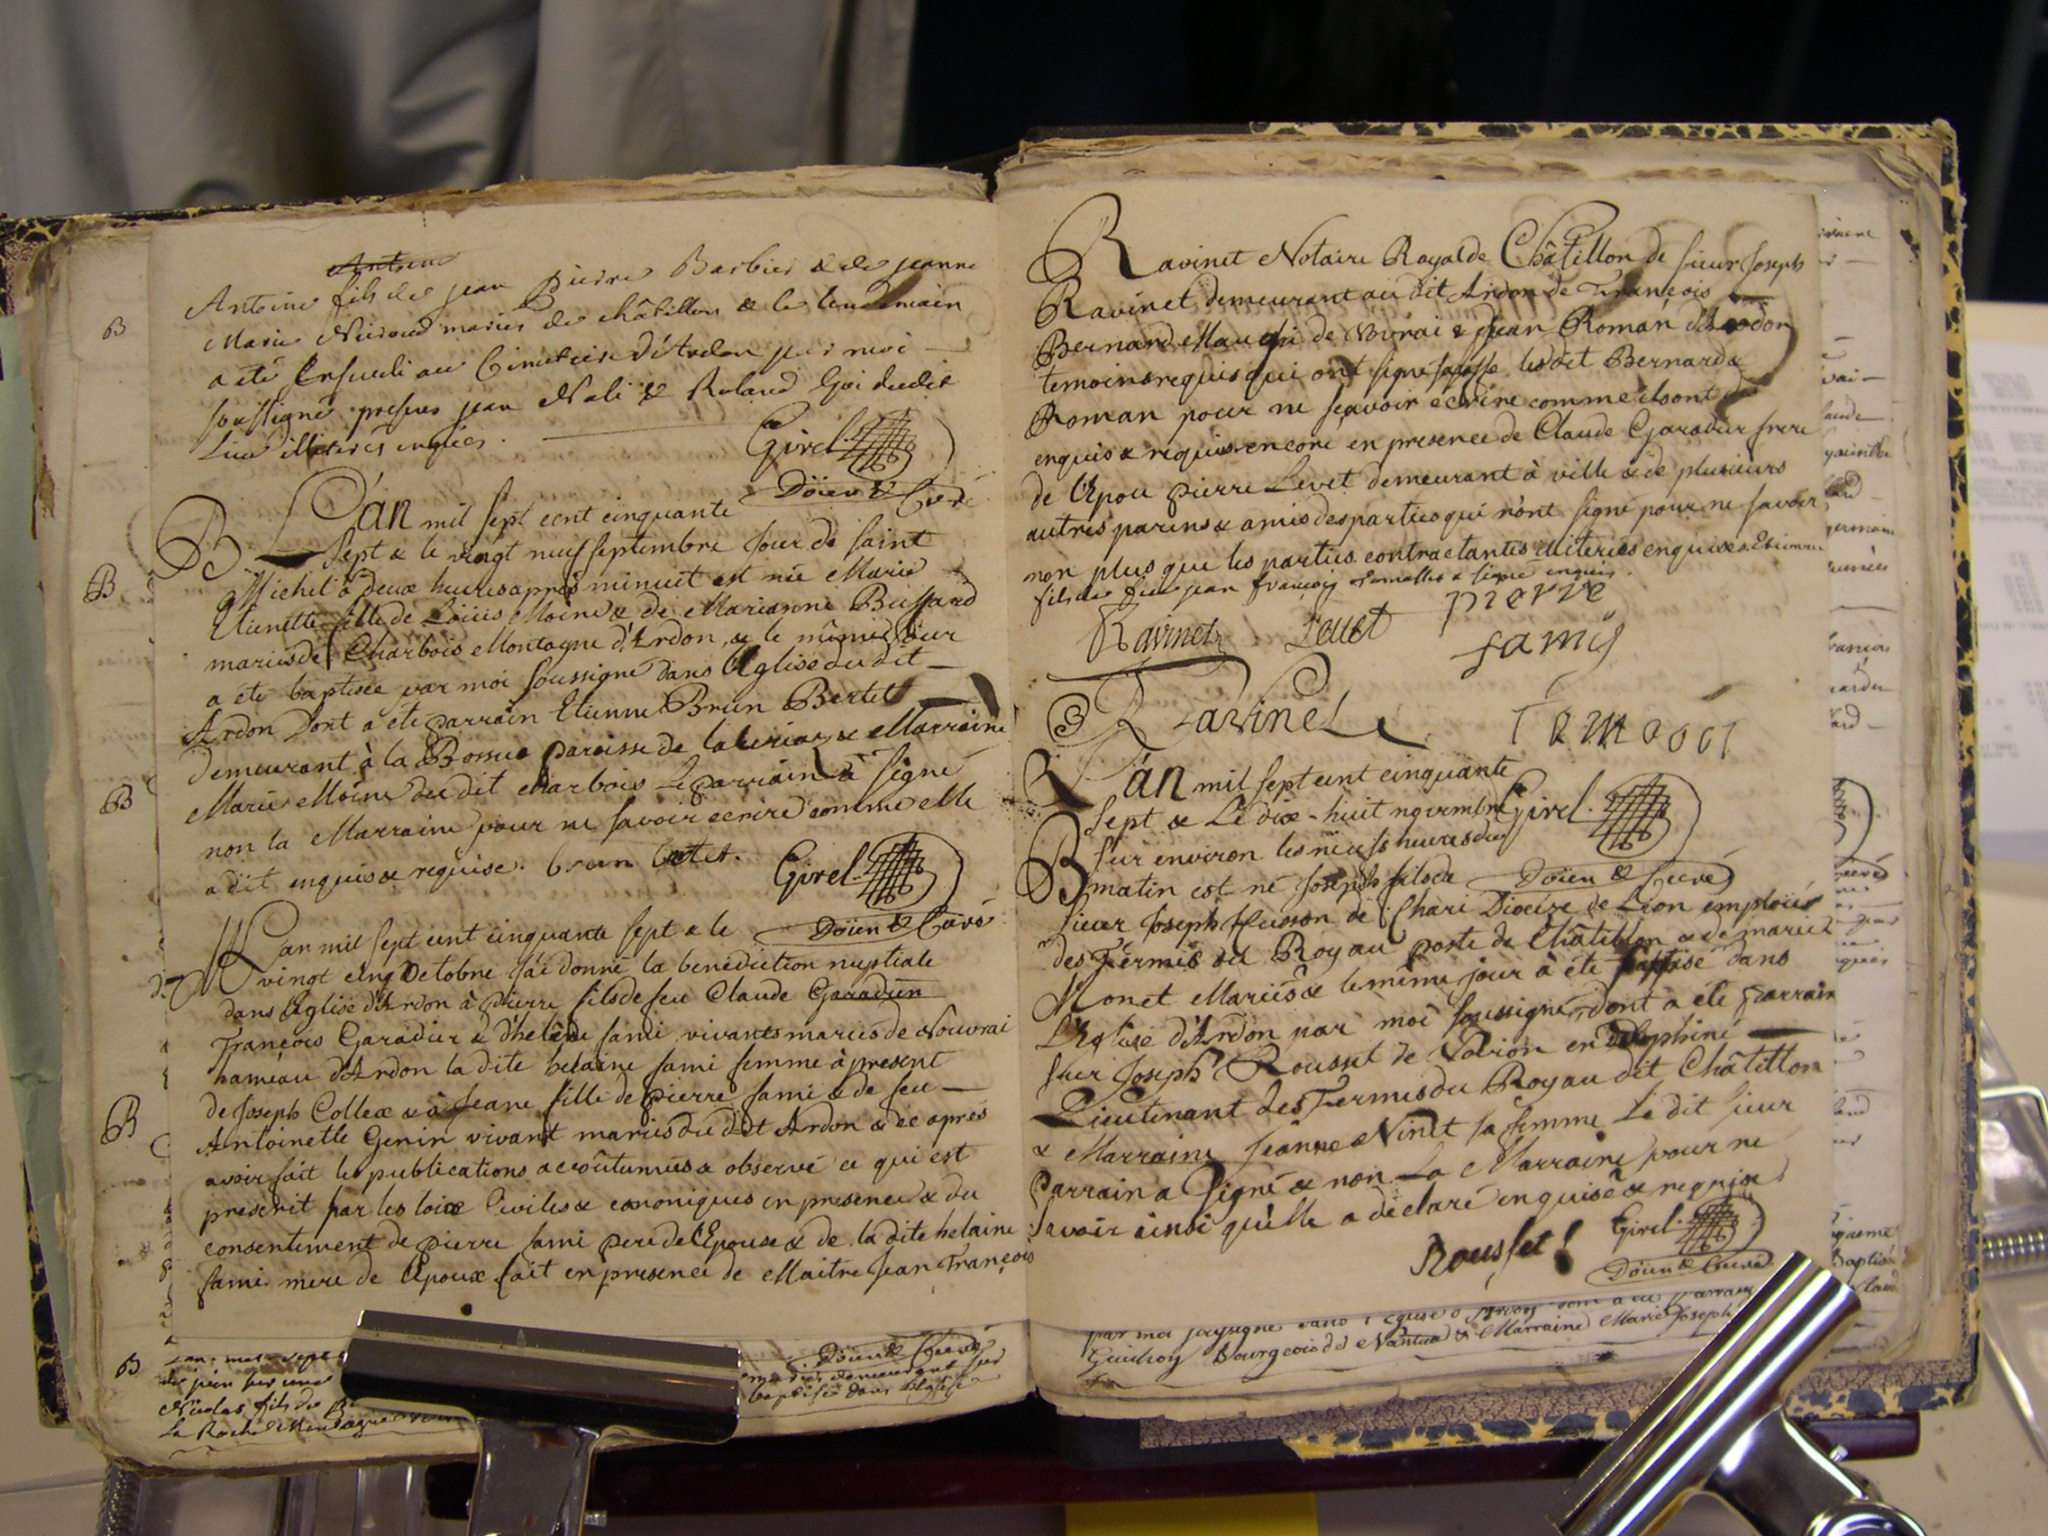 Antoine
Antoine fils de jean Pierre Barbier & de jeanne
Marie Neiroud mariés de châtillon & le lendemain
B
a été Enseveli au Cimetiere d'Ardon par moi
soussigné presens jean Nali & Roland Goi dudit
Lieu illiterés enquis.
Girel
Doïen & Curé
B L'an mil sept cent cinquante
sept & le vingt neuf septembre jour de saint
B
Michel à deux heures après minuit est née Marie
Etienette fille de Loüis Moine & de Marianne Bussard
mariés de Charbois Montagne d'Ardon, & le même jour
a été baptisée par moi soussigné dans l'Eglise du dit
Ardon Dont a été parrain Etienne Brun Bertet
demeurant à la Bossue paroisse de & Marraine
B
Marie Moine du dit charbois Le parrain à signé
non la Marraine pour ne savoir ecrire comme elle
a dit enquise & requise. brun
Girel
Doïen & Curé
L'an mil sept cent cinquante sept & le
vingt cinq Octobre j'ai donné la benediction nuptiale
dans l'Eglise d'Ardon à pierre fils de feu Claude Garadur
François Garadur & d'helène fami vivants mariés de Nouvrai
hameau d'Ardon la dite helaine fami femme à present
de Joseph Collex & à Jeane fille de pierre fami & de feu
B
Antoinette Genin vivant mariés du dit Ardon & ce après
avoir fait les publications accoûtumées & observé ce qui est
prescrit par les loix Civiles & canoniques en presence & du
consentement de pierre fami pere de l'Epouse & de la dite helaine
fami mere de l'Epoux fait en presence de Maitre Jean François
B
Doïen & Curé
mariés demeurant sur
baptisé dans l'Eglise
Nicolas fils de
La Roche
Ravinet Notaire Royal de Châtillon de sieur Joseph
Ravinet demeurant au dit Ardon de François
Bernard de Novrai & jean Roman d'Ardon
temoins requis qui ont signé sauf lesdit Bernard &
Roman pour ne sçavoir ecrire comme ils ont dit
enquis & requis encore en presence de Claude Garadur frere
de l'Epou pierre Levet demeurant à ville & de plusieurs
autres parens & amis des parties qui n'ont signé pour ne savoir
non plus que les parties contractantes illiterées enquises Etienne
fils de sieur jean françois a signé enquis.
Ravinet Levet pierre
famy
Ravinet
Girel
Doïen & Curé
L'an mil sept cent cinquante
sept & Le dix-huit novembre
B
sur environ les neuf heures du
matin est né Joseph fils de
sieur Joseph Husson de Chari Diocéze de Lion emploié
des Fermes du Roy au poste de Châtillon & de marie
Monet Mariés & le même jour à été baptisé dans
L'Eglise d'Ardon par moi soussigné, dont a été parrain
sieur Joseph Rousset de Voiron en Dalphiné
Lieutenant des Fermes du Roy au dit Châtillon
& Marraine Jeanne Ninet sa femme Le dit sieur
parrain a signé & non La Marraine pour ne
savoir ainsi qu'elle a déclaré enquise & requise
Rousset
Girel
Doïen & Curé
par moi soussigné dans l'eglise d'Ardon dont a été parrain
Bourgeois de Nantua & Marraine Marie Joseph